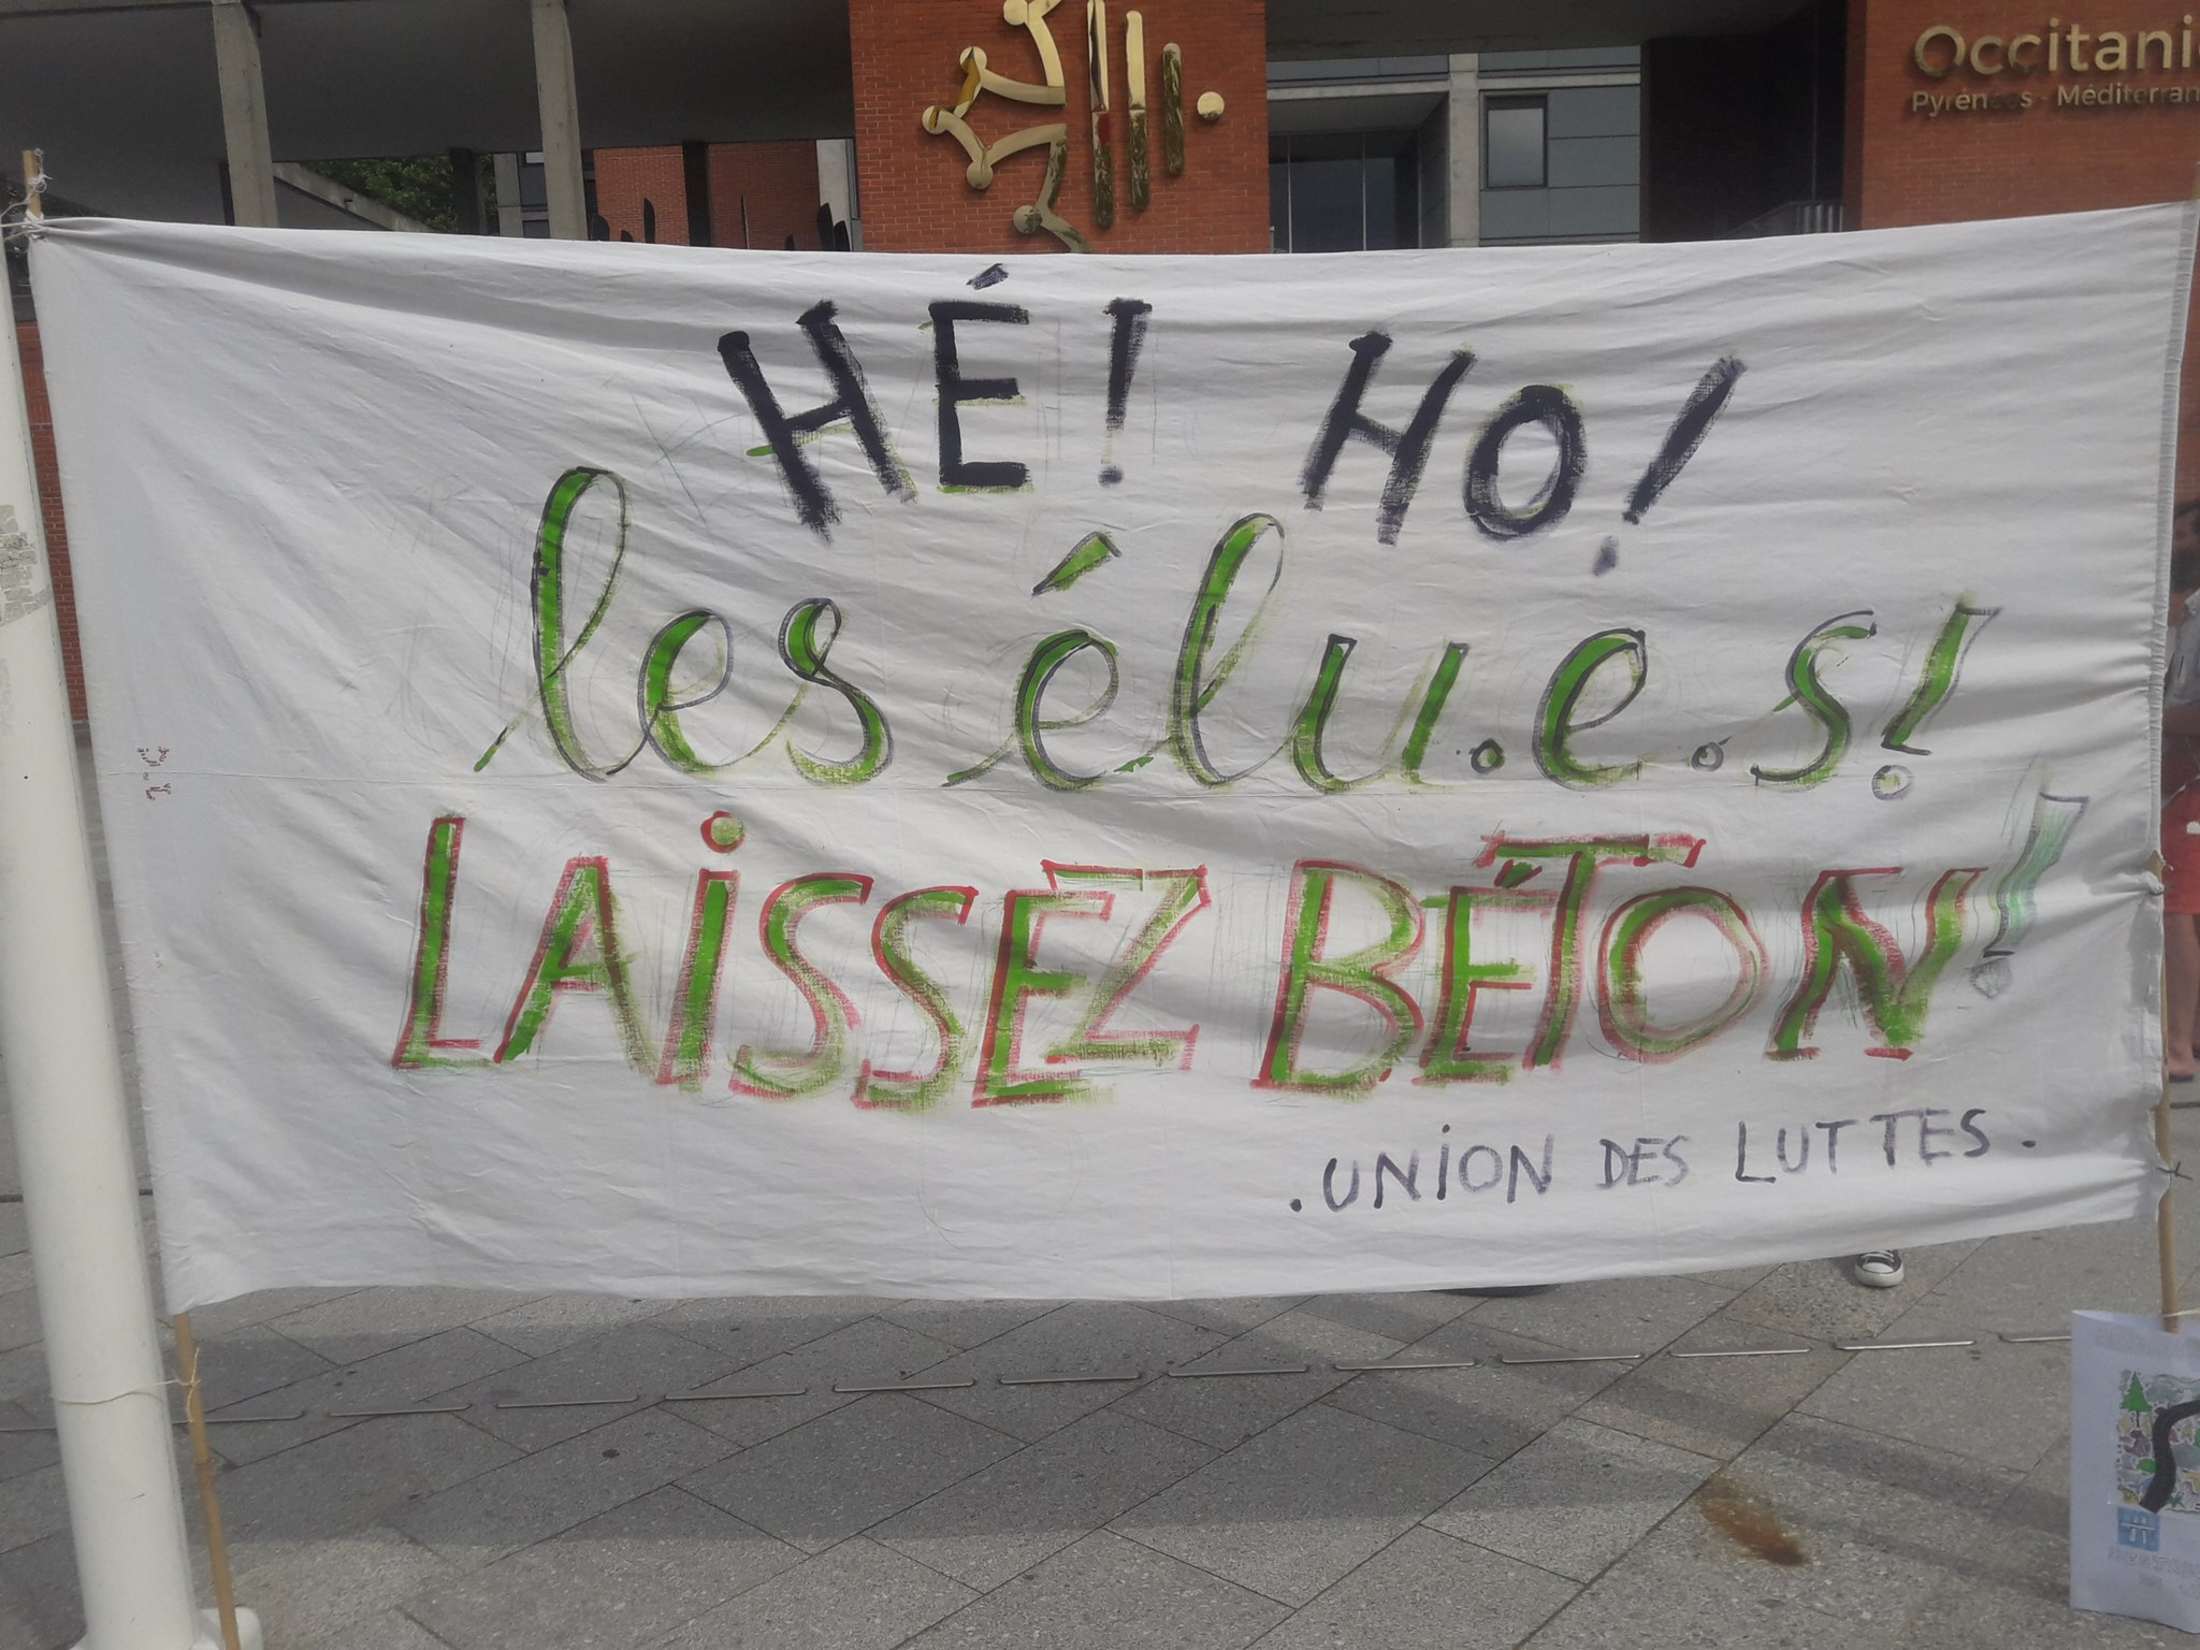 Occitanie
Pyrénées - Méditerran
HÉ! HO!
les élu.e.s!
LAISSEZ BÉTON!
.UNION DES LUTTES.